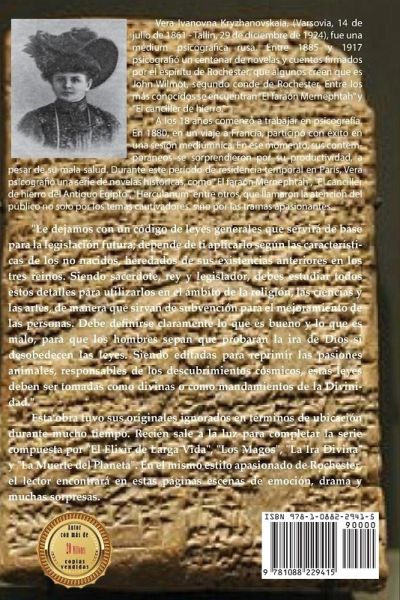 Vera Ivanovna Kryzhanovskaia, (Varsovia, 14 de
julio de 1861 - Tallin, 29 de diciembre de 1924), fue una
médium psicográfica rusa. Entre 1885 y 1917
psicografió un centenar de novelas y cuentos firmados
por el espíritu de Rochester, que algunos creen que es
John Wilmot, segundo conde de Rochester. Entre los
más conocidos se encuentran "El faraón Mernephtah" y
"El canciller de hierro."
A los 18 años comenzó a trabajar en psicografía.
En 1880, en un viaje a Francia, participó con éxito en
una sesión mediúmnica. En ese momento, sus contem-
poráneos se sorprendieron por su productividad, a
pesar de su mala salud. Durante este período de residencia temporal en París, Vera
psicografió una serie de novelas históricas, como "El faraón Mernephtah", "El canciller
de hierro del Antiguo Egipto", "Herculanum" entre otros, que llamaron la atención del
público no solo por los temas cautivadores, sino por las tramas apasionantes...
"Le dejamos con un código de leyes generales que servirá de base
para la legislación futura; depende de ti aplicarlo según las característi-
cas de los no nacidos, heredados de sus existencias anteriores en los
tres reinos. Siendo sacerdote, rey y legislador, debes estudiar todos
estos detalles para utilizarlos en el ámbito de la religión, las ciencias y
las artes, de manera que sirvan de subvención para el mejoramiento de
las personas. Debe definirse claramente lo que es bueno y lo que es
malo, para que los hombres sepan que probarán la ira de Dios si
desobedecen las leyes. Siendo editadas para reprimir las pasiones
animales, responsables de los descubrimientos cósmicos, estas leyes
deben ser tomadas como divinas o como mandamientos de la Divini-
dad."
Esta obra tuvo sus originales ignorados en términos de ubicación
durante mucho tiempo. Recién sale a la luz para completar la serie
compuesta por "El Elixir de Larga Vida", "Los Magos", "La Ira Divina"
y "La Muerte del Planeta". En el mismo estilo apasionado de Rochester,
el lector encontrará en estas páginas escenas de emoción, drama y
muchas sorpresas.
Autor
con más de
20 Millones
copias
vendidas
ISBN 978-1-0882-2941-5
90000
9 781088 229415